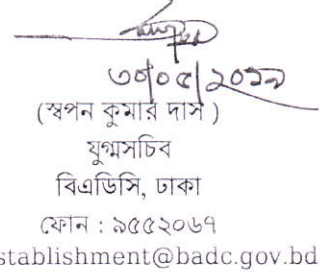 ৩০/০৫/২০১৯
(স্বপন কুমার দাস )
যুগ্মসচিব
বিএডিসি, ঢাকা
ফোন : ৯৫৫২০৬৭
stablishment@badc.gov.bd